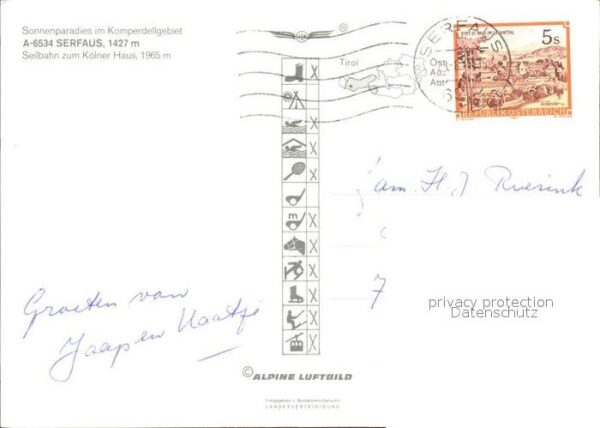 Sonnenparadies im Komperdellgebiet
A-6534 SERFAUS, 1427 m
Seilbahn zum Kölner Haus, 1965 m
Tirol
SERFAUS
STIFT ST. PAUL IM LAVANTTAL
5s
REPUBLIK ÖSTERREICH
X
X
X
X
X
X
m X
X
X
X
X
X
Fam. H. J. Roesink
7
Groeten van
Jaap en Naatje
privacy protection
Datenschutz
© ALPINE LUFTBILD
Freigegeben v. Bundesministerium f.
LANDESVERTEIDIGUNG